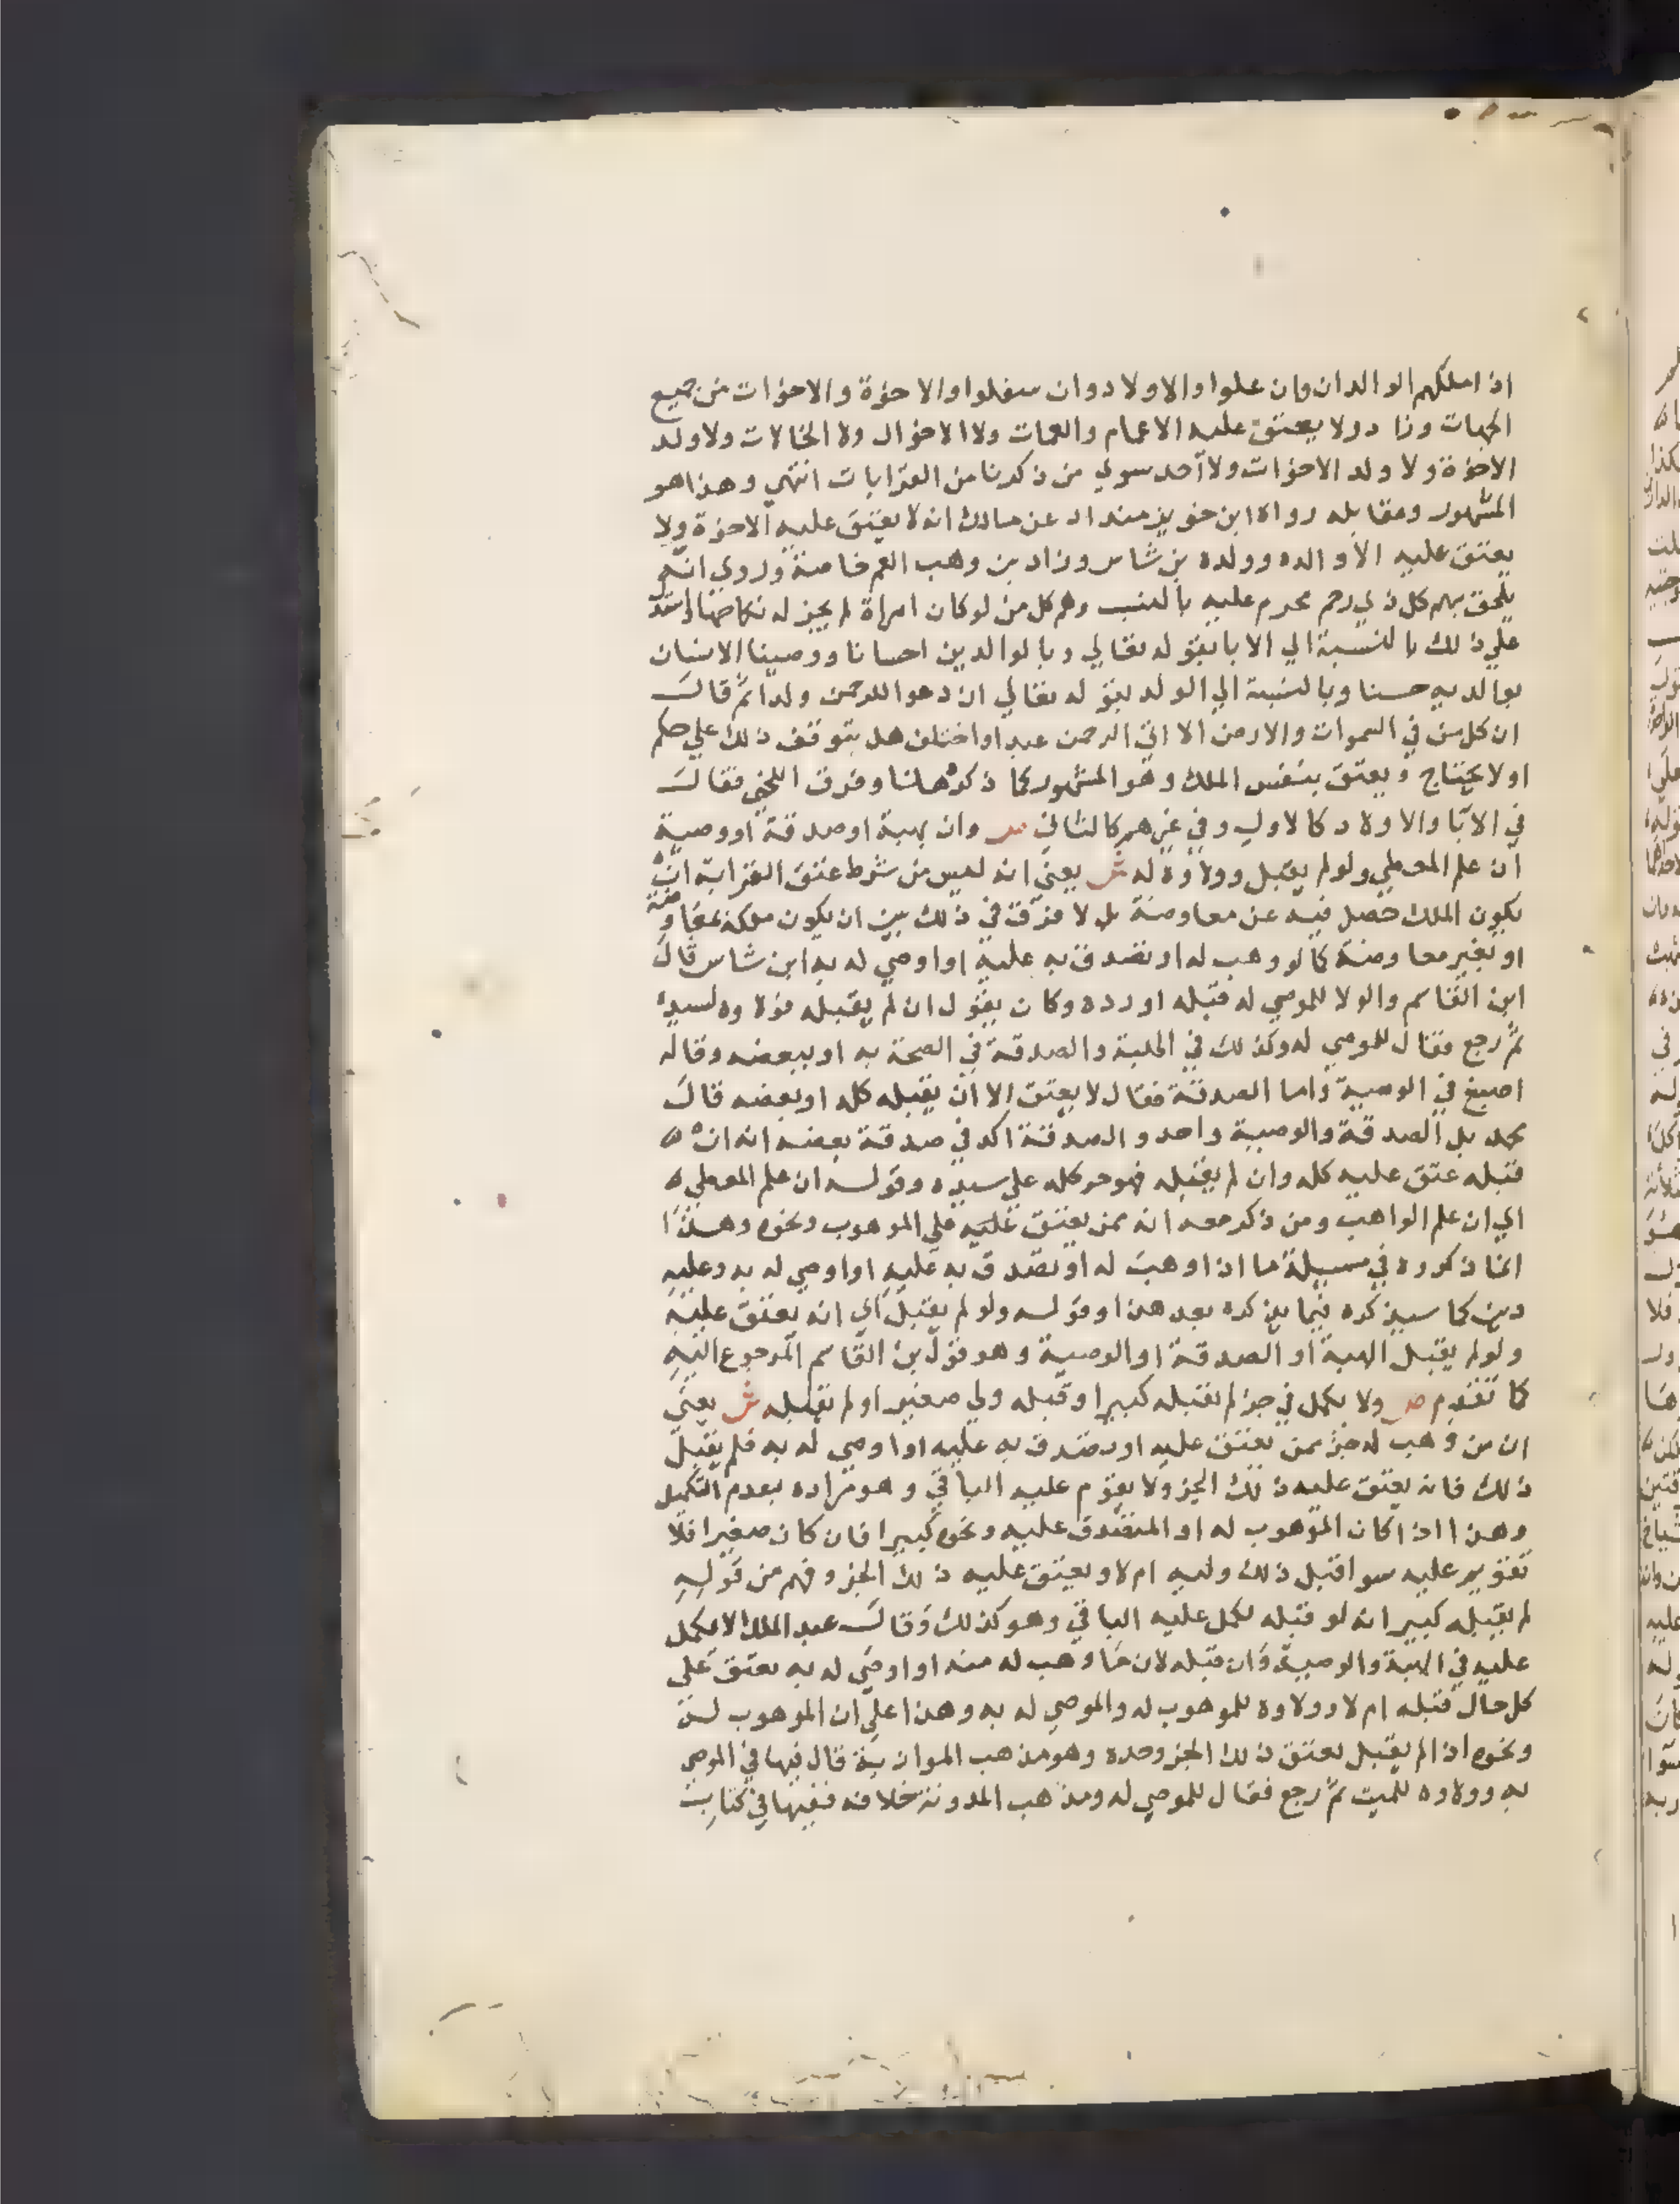 اذا ملكهم الوالدان وان علوا والاولاد وان سفلوا والاخوة والاخوات من جميع
الجهات وزاد ولا يعتق عليه الاعمام والعمات ولا الاخوال ولا الخالات ولا ولد
الاخوة ولا ولد الاخوات ولا احد سوي من ذكرنا من القرابات انتهي وهذا هو
المشهور ومقابله رواه ابن خويز منداد عن مالك انه لا يعتق عليه الاخوة ولا
يعتق عليه الا والده وولده بن شاس وزاد بن وهب العم خاصة وروي انه
يلحق بهم كل ذي رحم محرم عليه بالنسب وهم كل من لو كان امراة لم يجز له نكاحها واستدل
علي ذلك بالنسبة الي الابا بقوله تعالي وبالوالدين احسانا ووصينا الانسان
بوالديه حسنا وبالنسبة الي الولد بقوله تعالي ان دعوا للرحمن ولدا ثم قال
ان كل من في السموات والارض الا اتي الرحمن عبدا واختلف هل يتوقف ذلك علي حكم
او لا يحتاج ويعتق بنفس الملك وهو المشهور كما ذكره هنا وفرق اللخمي فقال
في الابا والاولاد كالاول وفي غيرهم كالثاني ص وان بهبة او صدقة او وصية
ان علم المعطي ولو لم يقبل وولاوه له ش يعني انه ليس من شرط عتق القرابة ان
يكون الملك حصل فيه عن معاوضة بل لا فرق في ذلك بين ان يكون ملكه بمعاوضة
او بغير معاوضة كما لو وهب له او تصدق به عليه او اوصي له به ابن شاس قال
ابن القاسم والولا للموصي له قبله او رده وكان يقول ان لم يقبله فولاوه لسيده
ثم رجع فقال للموصي له وكذلك في الهبة والصدقة في الصحة به او ببعضه وقاله
اصبغ في الوصية واما الصدقة فقال لا يعتق الا ان يقبله كله او بعضه قال
محمد بل الصدقة والوصية واحد والصدقة اكد في صدقة بعضه انه ان
قبله عتق عليه كله وان لم يقبله فهو حر كله علي سيده وقوله ان علم المعطي
اي ان علم الواهب ومن ذكر معه انه ممن يعتق عليه علي الموهوب ونحوه وهذا
انما ذكروه في مسيلة ما اذا وهب له او تصدق به عليه او اوصي له به وعليه
دين كما سيذكره فيما يذكره بعد هذا وقوله ولو لم يقبل اي انه يعتق عليه
ولو لم يقبل الهبة او الصدقة او الوصية وهو قول بن القاسم المرجوع اليه
كما تقدم ص ولا يكمل في جز لم يقبله كبير او قبله ولي صغير او لم يقبله ش يعني
ان من وهب له جز ممن يعتق عليه او تصدق به عليه او اوصي له به فلم يقبل
ذلك فانه يعتق عليه ذلك الجز ولا يقوم عليه الباقي وهو مراده بعدم التكميل
وهذا اذا كان الموهوب له او المتصدق عليه ونحوه كبيرا فان كان صغيرا فلا
تقويم عليه سوا قبل ذلك وليه ام لا ويعتق عليه ذلك الجز وفهم من قوله
لم يقبله كبير انه لو قبله لكمل عليه الباقي وهو كذلك وقال عبد الملك لا يكمل
عليه في الهبة والوصية وان قبله لان ما وهب له منه او اوصي له به يعتق علي
كل حال قبله ام لا وولاوه للموهوب له والموصي له به وهذا علي ان الموهوب له
ونحوه اذا لم يقبل يعتق ذلك الجز وحده وهو مذهب الموازية قال فيها في الموصي
به وولاوه للميت ثم رجع فقال للموصي له ومذهب المدونة خلافه ففيها في كتاب